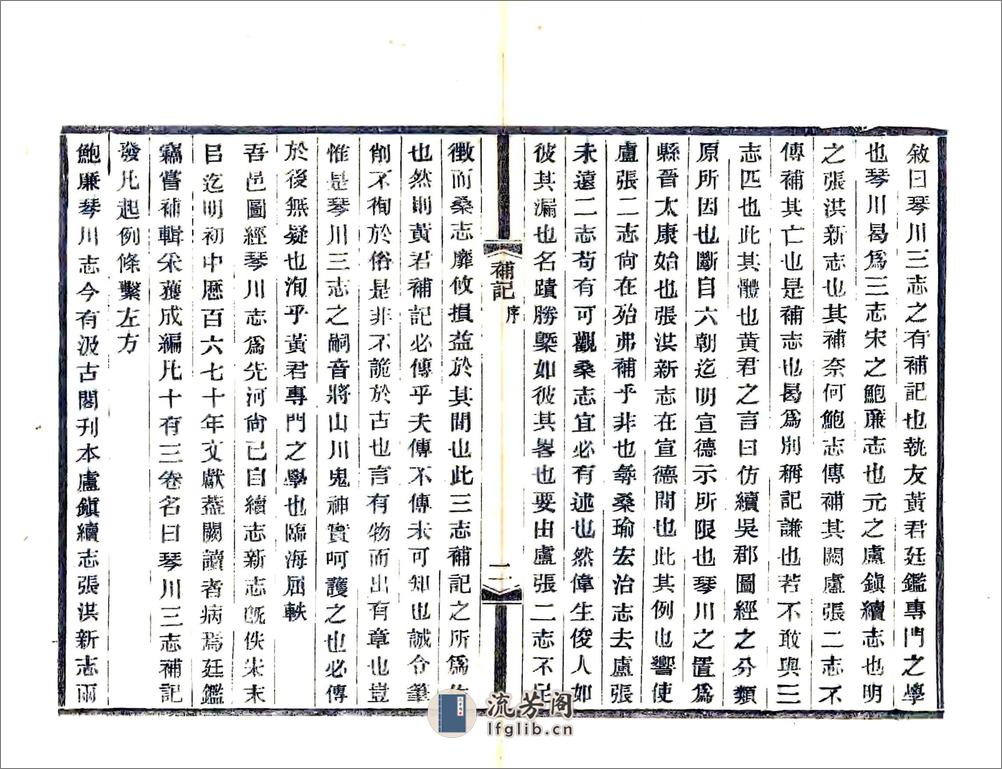 敘曰琴川三志之有補記也執友黃君廷鑑專門之學
也琴川曷爲三志宋之鮑廉志也元之盧鎭續志也明
之張洪新志也其補奈何鮑志傳補其闕盧張二志不
傳補其亡也是補志也曷爲別稱記謙也若不敢與三
志匹也此其體也黃君之言曰仿續吳郡圖經之分類
原所因也斷自六朝迄明宣德示所限也琴川之置爲
縣晉太康始也張洪新志在宣德間也此其例也嚮使
盧張二志尙在殆弗補乎非也彝桑瑜宏治志去盧張
未遠二志苟有可觀桑志宜必有述也然偉生俊人如
彼其漏也名蹟勝槩如彼其畧也要由盧張二志不足
補記
序
二
徵而桑志靡攸損益於其間也此三志補記之所爲作
也然則黃君補記必傳乎夫傳不傳未可知也誠令筆
削不徇於俗是非不詭於古也言有物而出有章也豈
惟是琴川三志之嗣音將山川鬼神實呵護之也必傳
於後無疑也洵乎黃君專門之學也臨海屈軼
吾邑圖經琴川志爲先河尙已自續志新志旣佚未末
㠯迄明初中歷百六七十年文獻葢闕讀者病焉廷鑑
竊嘗補輯采獲成編凡十有三卷名曰琴川三志補記
發凡起例條繫左方
鮑廉琴川志今有汲古閣刊本盧鎭續志張洪新志兩
流芳阁
lfglib.cn